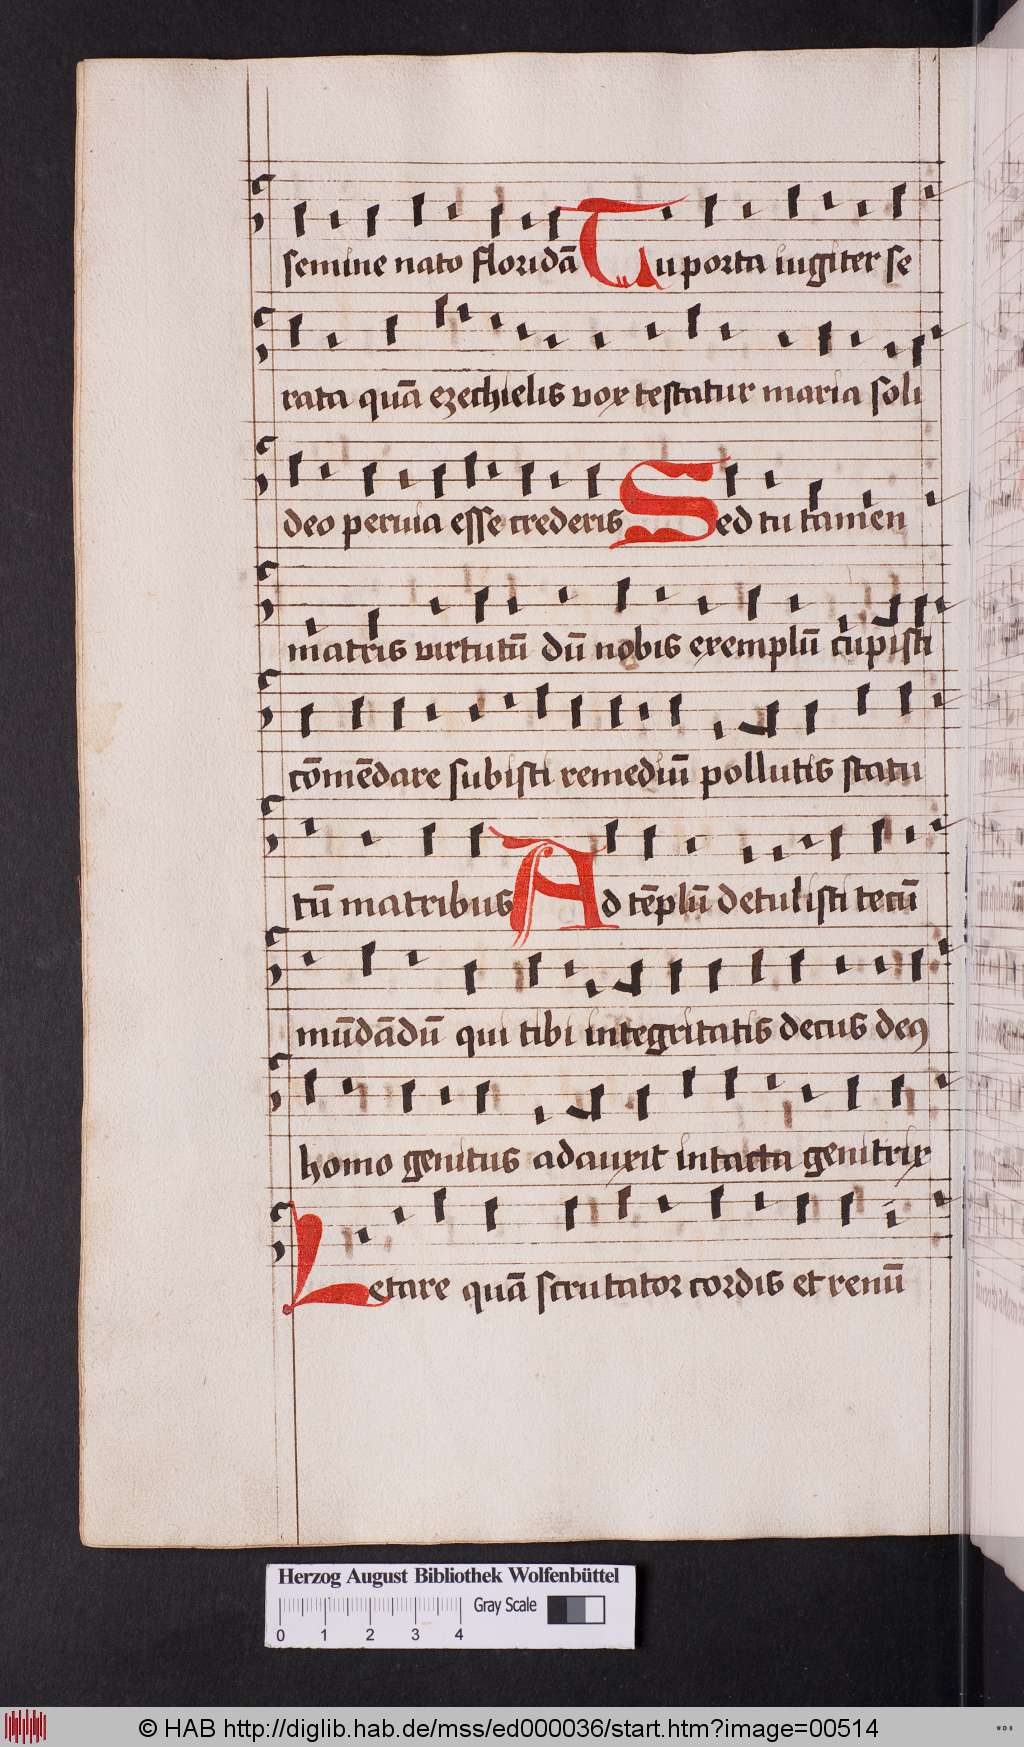 semine nato floridā Tu porta iugiter se
rata quā ezechielis vox testatur maria soli
deo peruia esse crederis Sed tu tamen
matris virtutū dū nobis exemplū cupisti
cōmēdare subisti remediū pollutis statu
tū matribus Ad tēplū detulisti tecū
mūdādū qui tibi integritatis decus deꝰ
homo genitus adauxit intacta genitrix
Letare quā scrutator cordis et renū
Herzog August Bibliothek Wolfenbüttel
Gray Scale
0 1 2 3 4
© HAB http://diglib.hab.de/mss/ed000036/start.htm?image=00514